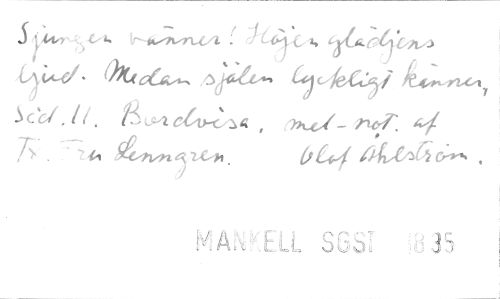 Sjungen vänner! Höjen glädjens
ljud. Medan själen lyckligt känner,
Sid. 11. Bordvisa, mel-not. af
Tx. Fru Lenngren. Olof Åhlström.
MANKELL SGST 1835